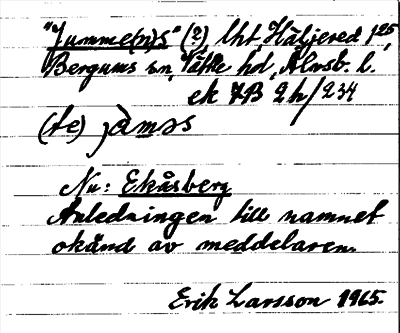 "Jumme(n)s" (?), lht, Häljered 1²⁵,
Bergums sn, Vättle hd, Älvsb. l.
ek 7B 2h/234
(te) jòməs
Nu: Ekåsberg
Anledningen till namnet
okänd av meddelaren.
Erik Larsson 1965.